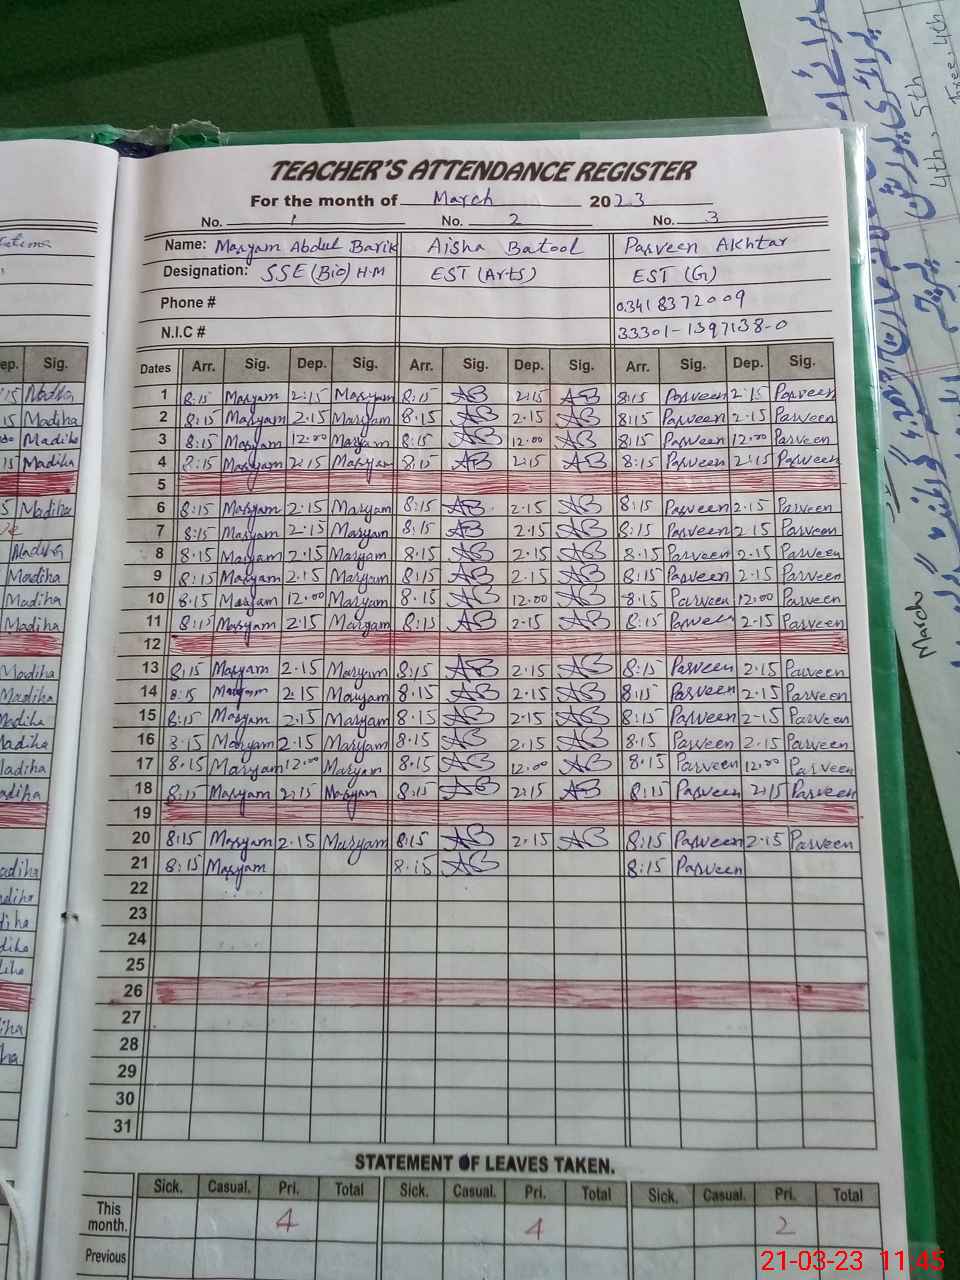 TEACHER'S ATTENDANCE REGISTER
For the month of March 2023
No. 1 No. 2 No. 3
Name: Maryam Abdul Barik Aisha Batool Parveen Akhtar
Designation: SSE (Bio) H.M EST (Arts) EST (G)
Phone # 03418372009
N.I.C # 33301-1397138-0
Dates Arr. Sig. Dep. Sig. Arr. Sig. Dep. Sig. Arr. Sig. Dep. Sig.
1 8:15 Maryam 2:15 Maryam 8:15 AB 2:15 AB 8:15 Parveen 2:15 Parveen
2 8:15 Maryam 2.15 Maryam 8.15 AB 2.15 AB 8:15 Parveen 2.15 Parveen
3 8:15 Maryam 12.00 Maryam 8:15 AB 12.00 AB 8:15 Parveen 12.00 Parveen
4 8:15 Maryam 2:15 Maryam 8:15 AB 2:15 AB 8:15 Parveen 2:15 Parveen
5
6 8:15 Maryam 2.15 Maryam 8:15 AB 2.15 AB 8:15 Parveen 2.15 Parveen
7 8:15 Maryam 2.15 Maryam 8:15 AB 2.15 AB 8:15 Parveen 2.15 Parveen
8 8.15 Maryam 2.15 Maryam 8.15 AB 2.15 AB 8.15 Parveen 2.15 Parveen
9 8:15 Maryam 2.15 Maryam 8:15 AB 2.15 AB 8:15 Parveen 2.15 Parveen
10 8.15 Maryam 12.00 Maryam 8.15 AB 12.00 AB 8.15 Parveen 12.00 Parveen
11 8:15 Maryam 2.15 Maryam 8:15 AB 2.15 AB 8:15 Parveen 2.15 Parveen
12
13 8:15 Maryam 2.15 Maryam 8:15 AB 2.15 AB 8:15 Parveen 2.15 Parveen
14 8:15 Maryam 2.15 Maryam 8.15 AB 2.15 AB 8:15 Parveen 2.15 Parveen
15 8:15 Maryam 2.15 Maryam 8.15 AB 2.15 AB 8:15 Parveen 2-15 Parveen
16 8.15 Maryam 2.15 Maryam 8.15 AB 2.15 AB 8.15 Parveen 2.15 Parveen
17 8.15 Maryam 12.00 Maryam 8.15 AB 12.00 AB 8.15 Parveen 12.00 Parveen
18 8:15 Maryam 2:15 Maryam 8:15 AB 2:15 AB 8:15 Parveen 2:15 Parveen
19
20 8:15 Maryam 2.15 Maryam 8:15 AB 2.15 AB 8:15 Parveen 2.15 Parveen
21 8:15 Maryam 8:15 AB 8:15 Parveen
22
23
24
25
26
27
28
29
30
31
STATEMENT OF LEAVES TAKEN.
Sick. Casual. Pri. Total Sick. Casual. Pri. Total Sick. Casual. Pri. Total
This month. 4 4 2
Previous
ep. Sig.
Madiha
Madiha
Madiha
Madiha
Madiha
Madiha
Madiha
Madiha
Madiha
Madiha
March
4th, 5th
Three, 4th
21-03-23 11:45